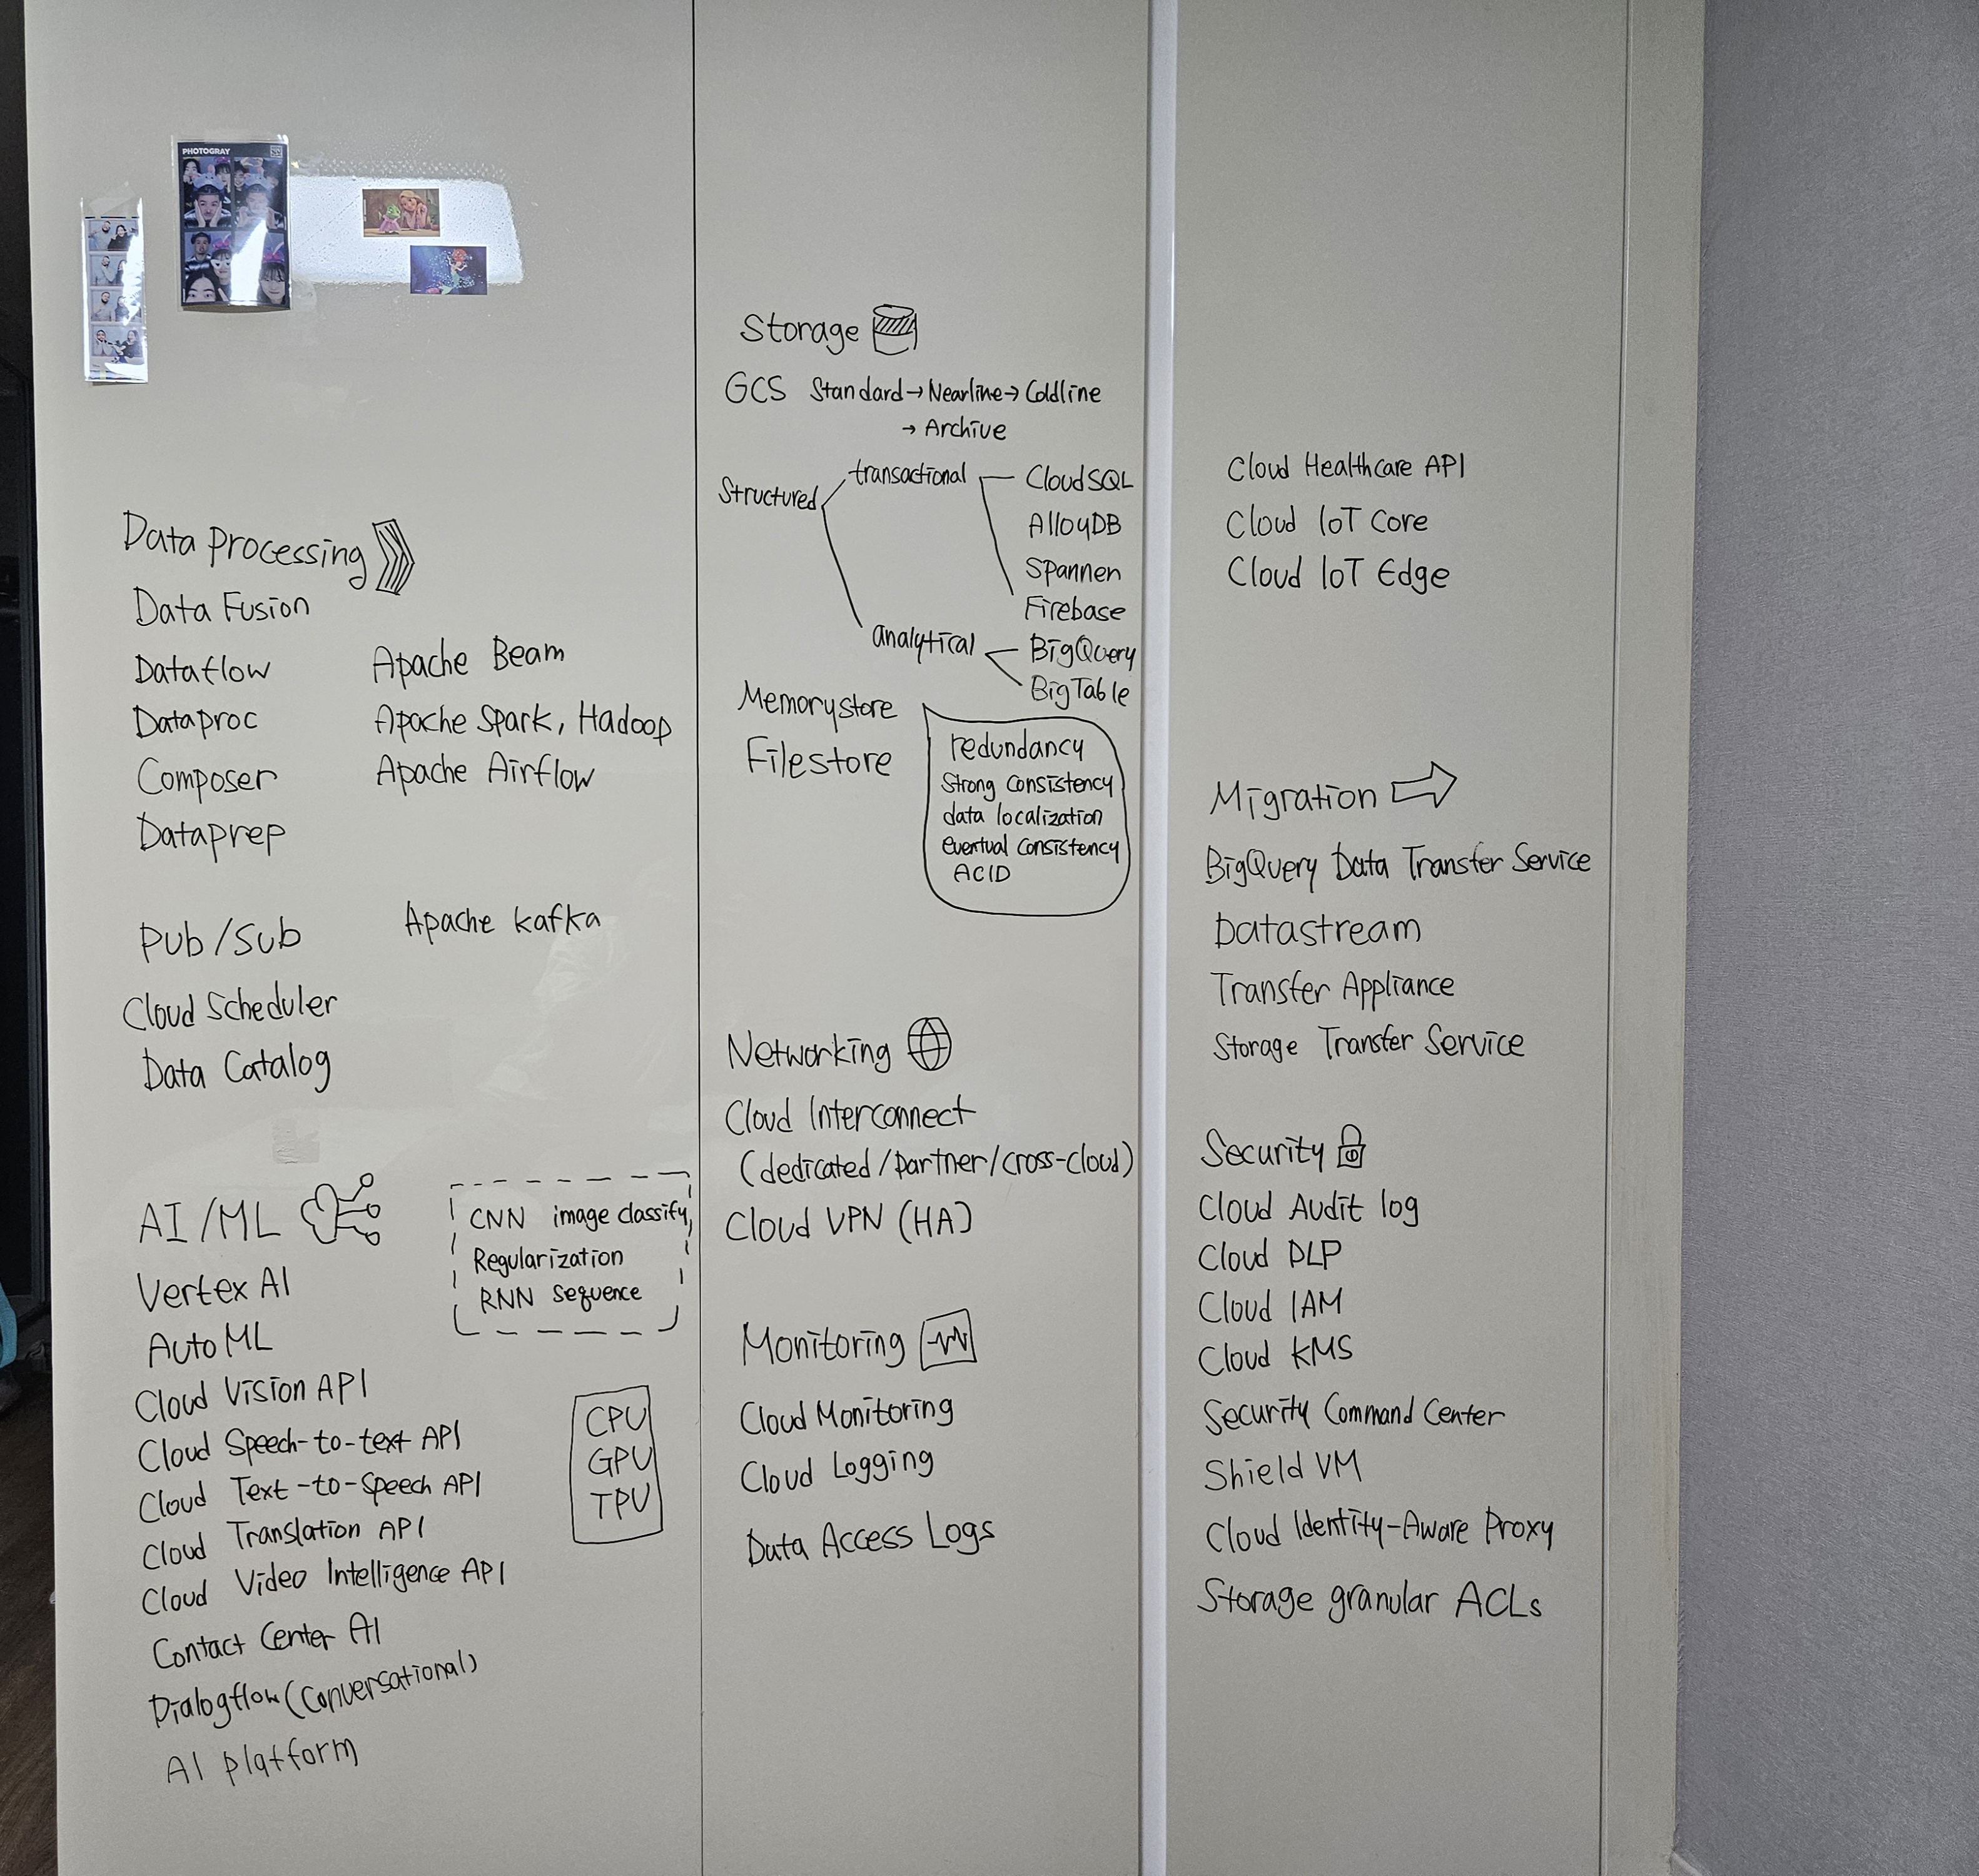 PHOTOGRAY
Data Processing
Data Fusion
Dataflow Apache Beam
Dataproc Apache Spark, Hadoop
Composer Apache Airflow
Dataprep
Pub/Sub Apache Kafka
Cloud Scheduler
Data Catalog
AI/ML
Vertex AI
AutoML
Cloud Vision API
Cloud Speech-to-text API
Cloud Text-to-Speech API
Cloud Translation API
Cloud Video Intelligence API
Contact Center AI
Dialogflow (Conversational)
AI platform
CNN image classify,
Regularization
RNN Sequence
CPU
GPU
TPU
Storage
GCS Standard → Nearline → Coldline
→ Archive
Structured
transactional
CloudSQL
AlloyDB
Spannen
Firebase
analytical
BigQuery
BigTable
Memorystore
Filestore
redundancy
Strong Consistency
data localization
eventual Consistency
ACID
Networking
Cloud Interconnect
(dedicated/partner/cross-cloud)
Cloud VPN (HA)
Monitoring
Cloud Monitoring
Cloud Logging
Data Access Logs
Cloud Healthcare API
Cloud IoT Core
Cloud IoT Edge
Migration
BigQuery Data Transfer Service
Datastream
Transfer Appliance
Storage Transfer Service
Security
Cloud Audit log
Cloud DLP
Cloud IAM
Cloud KMS
Security Command Center
Shield VM
Cloud Identity-Aware Proxy
Storage granular ACLs